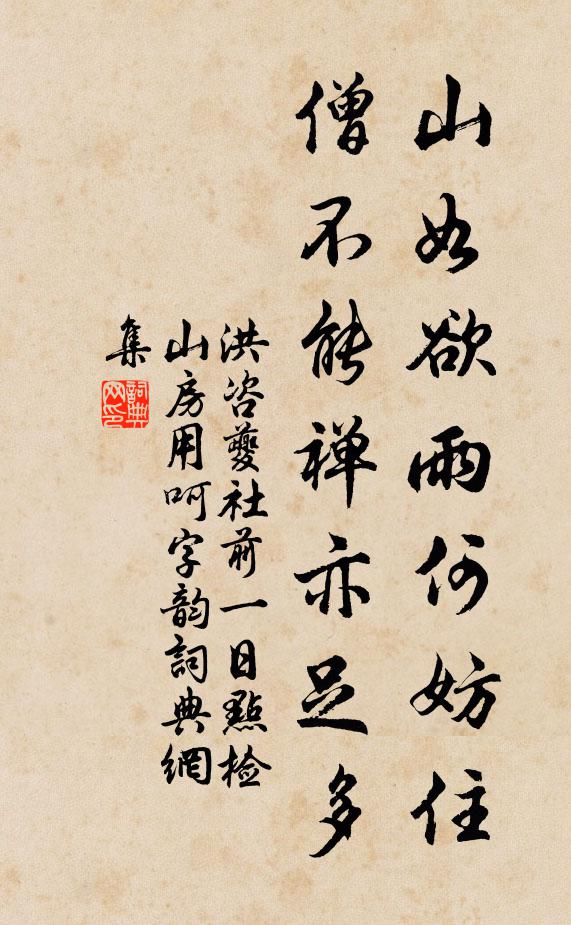 山如欲雨何妨住
僧不能禅亦足多
洪咨夔社前一日點检
山房用呵字韵詞典網
集
詞典網印